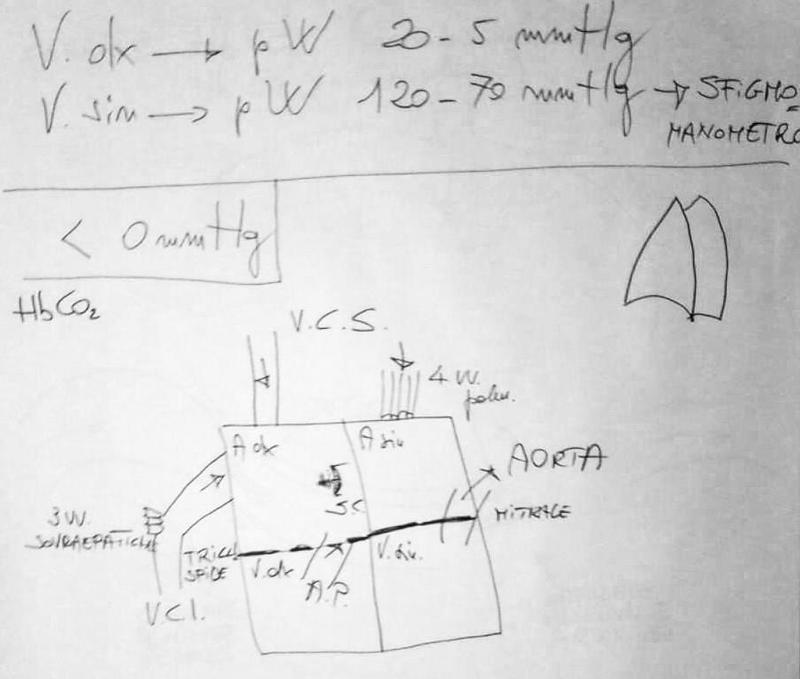 V. dx → p W 20-5 mmHg
V. sin → p W 120-70 mmHg → SFIGMO
MANOMETRO
< 0 mmHg
HbCO₂
V.C.S.
4 VV.
polm.
A dx
A sin
AORTA
S.C.
MITRALE
3 VV.
SOVRAEPATICHE
TRICU
SPIDE
V. dx
A.P.
V. sin.
V.C.I.